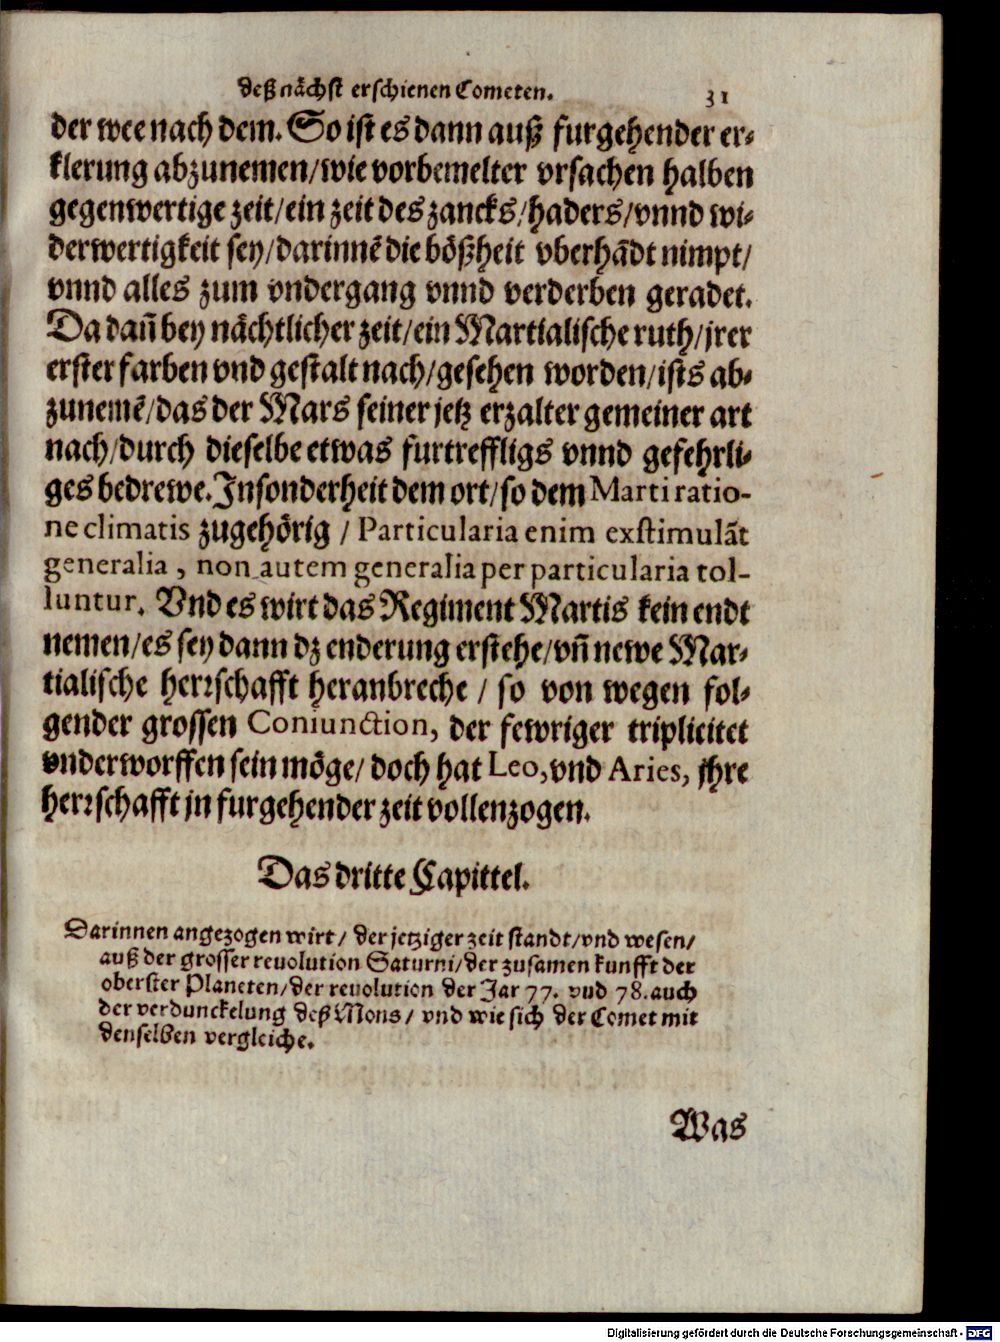 deß nächst erschienen Cometen. 31
der wee nach dem. So ist es dann auß furgehender er-
klerung abzunemen/wie vorbemelter vrsachen halben
gegenwertige zeit/ein zeit des zancks/haders/vnnd wi-
derwertigkeit sey/darinnē die bößheit vberhādt nimpt/
vnnd alles zum vndergang vnnd verderben geradet.
Da dañ bey nächtlicher zeit/ein Martialische ruth/jrer
erster farben vnd gestalt nach/gesehen worden/ists ab-
zunemē/das der Mars seiner jetz erzalter gemeiner art
nach/durch dieselbe etwas furtreffligs vnnd gefehrli-
ges bedrewe. Jnsonderheit dem ort/so dem Marti ratio-
ne climatis zugehörig / Particularia enim exstimulāt
generalia, non autem generalia per particularia tol-
luntur. Vnd es wirt das Regiment Martis kein endt
nemen/es sey dann dz enderung erstehe/vñ newe Mar-
tialische herꝛschafft heranbreche / so von wegen fol-
gender grossen Coniunction, der fewriger triplicitet
vnderworffen sein möge/ doch hat Leo, vnd Aries, jhre
herꝛschafft jn furgehender zeit vollenzogen.
Das dritte Capittel.
Darinnen angezogen wirt/ der jetziger zeit standt/vnd wesen/
auß der grosser reuolution Saturni/der zusamen kunfft der
oberster Planeten/der reuolution der Jar 77. vnd 78. auch
der verdunckelung deß Mons/ vnd wie sich der Comet mit
denselben vergleiche.
Was
Digitalisierung gefördert durch die Deutsche Forschungsgemeinschaft - DFG